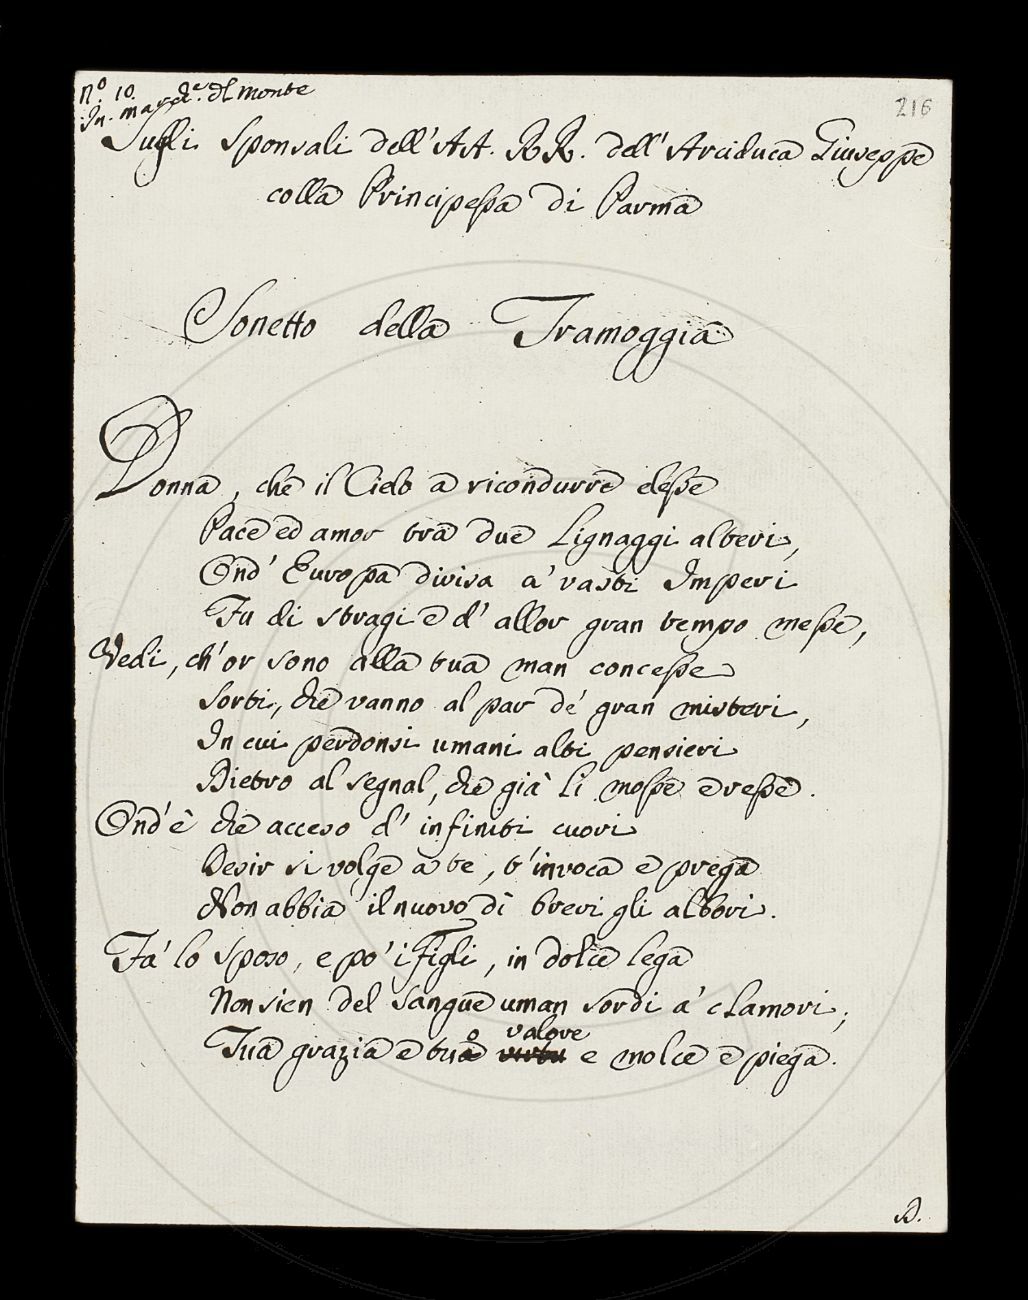 N.o 10.
216
In. march.e del monte
Sugli Sponsali dell'AA. RR. dell'Arciduca Giuseppe
colla Principessa di Parma
Sonetto della Tramoggia
Donna, che il Cielo a ricondurre elesse
Pace ed amor tra due Lignaggi alteri,
Ond' Europa divisa a' vasti Imperi
Fu di stragi e d' allor gran tempo messe,
Vedi, ch'or sono alla tua man concesse
Sorti, che vanno al par de' gran misteri,
In cui perdonsi umani alti pensieri
Dietro al segnal, che già li mosse e resse.
Ond'è che acceso d' infiniti cuori
Desir si volge a te, t'invoca e prega
Non abbia il nuovo dì brevi gli albori.
Fa' lo sposo, e po' i figli, in dolce lega
Non sien del sangue uman sordi a' clamori;
valore
Tua grazia e tuo virtu e molce e piega.
B.